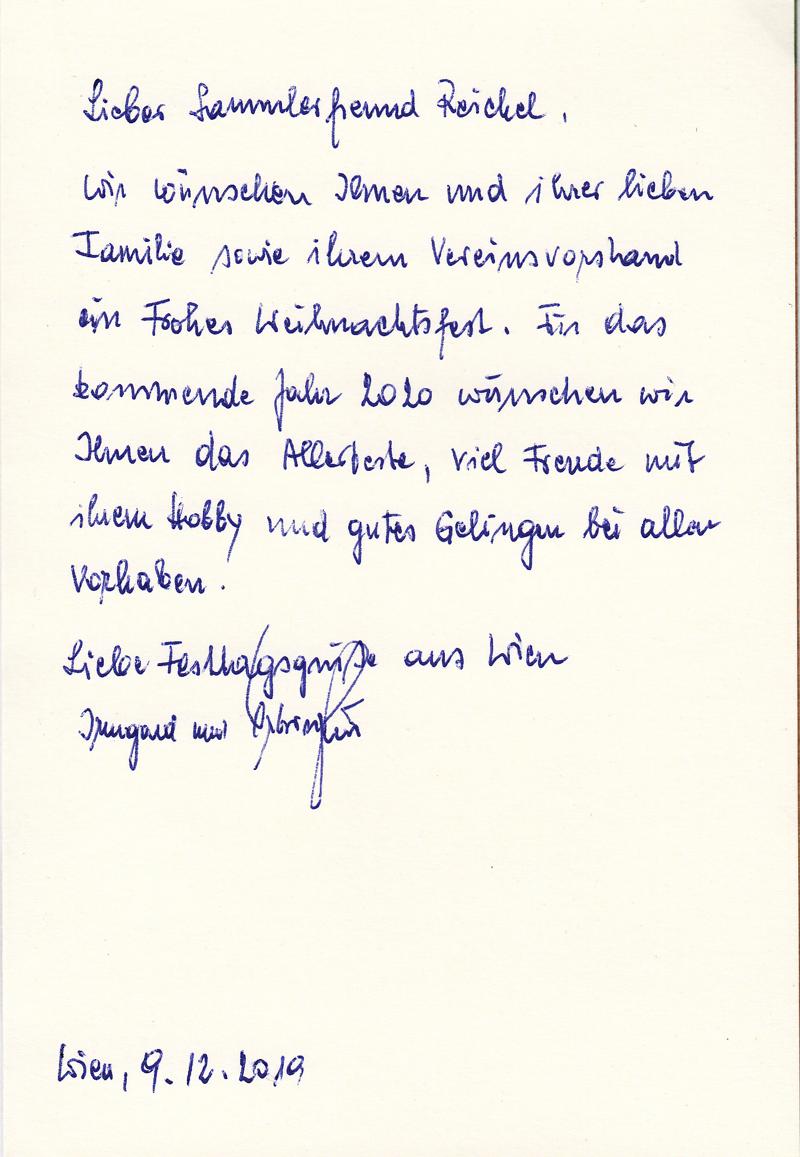 Lieber Sammlerfreund Reichel,
wir wünschen Ihnen und ihrer lieben
Familie sowie ihrem Vereinsvorstand
ein Frohes Weihnachtsfest. Für das
kommende Jahr 2020 wünschen wir
Ihnen das Allerbeste, viel Freude mit
ihrem Hobby und gutes Gelingen bei allen
Vorhaben.
Liebe Festtagsgrüße aus Wien
Irmgard und
Wien, 9.12.2019